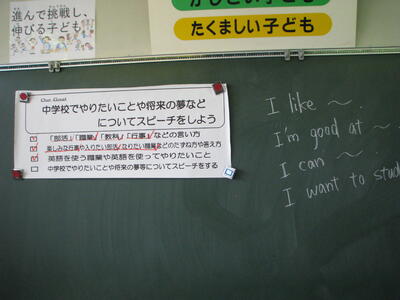 進んで挑戦し、
伸びる子ども
たくましい子ども
Our Goal
中学校でやりたいことや将来の夢など
についてスピーチをしよう
「部活」「職業」「教科」「行事」などの言い方
楽しみな行事や入りたい部活、なりたい職業などのたずね方や答え方
英語を使う職業や英語を使ってやりたいこと
中学校でやりたいことや将来の夢等についてスピーチをする
I like ～.
I'm good at ～.
I can ～.
I want to stud